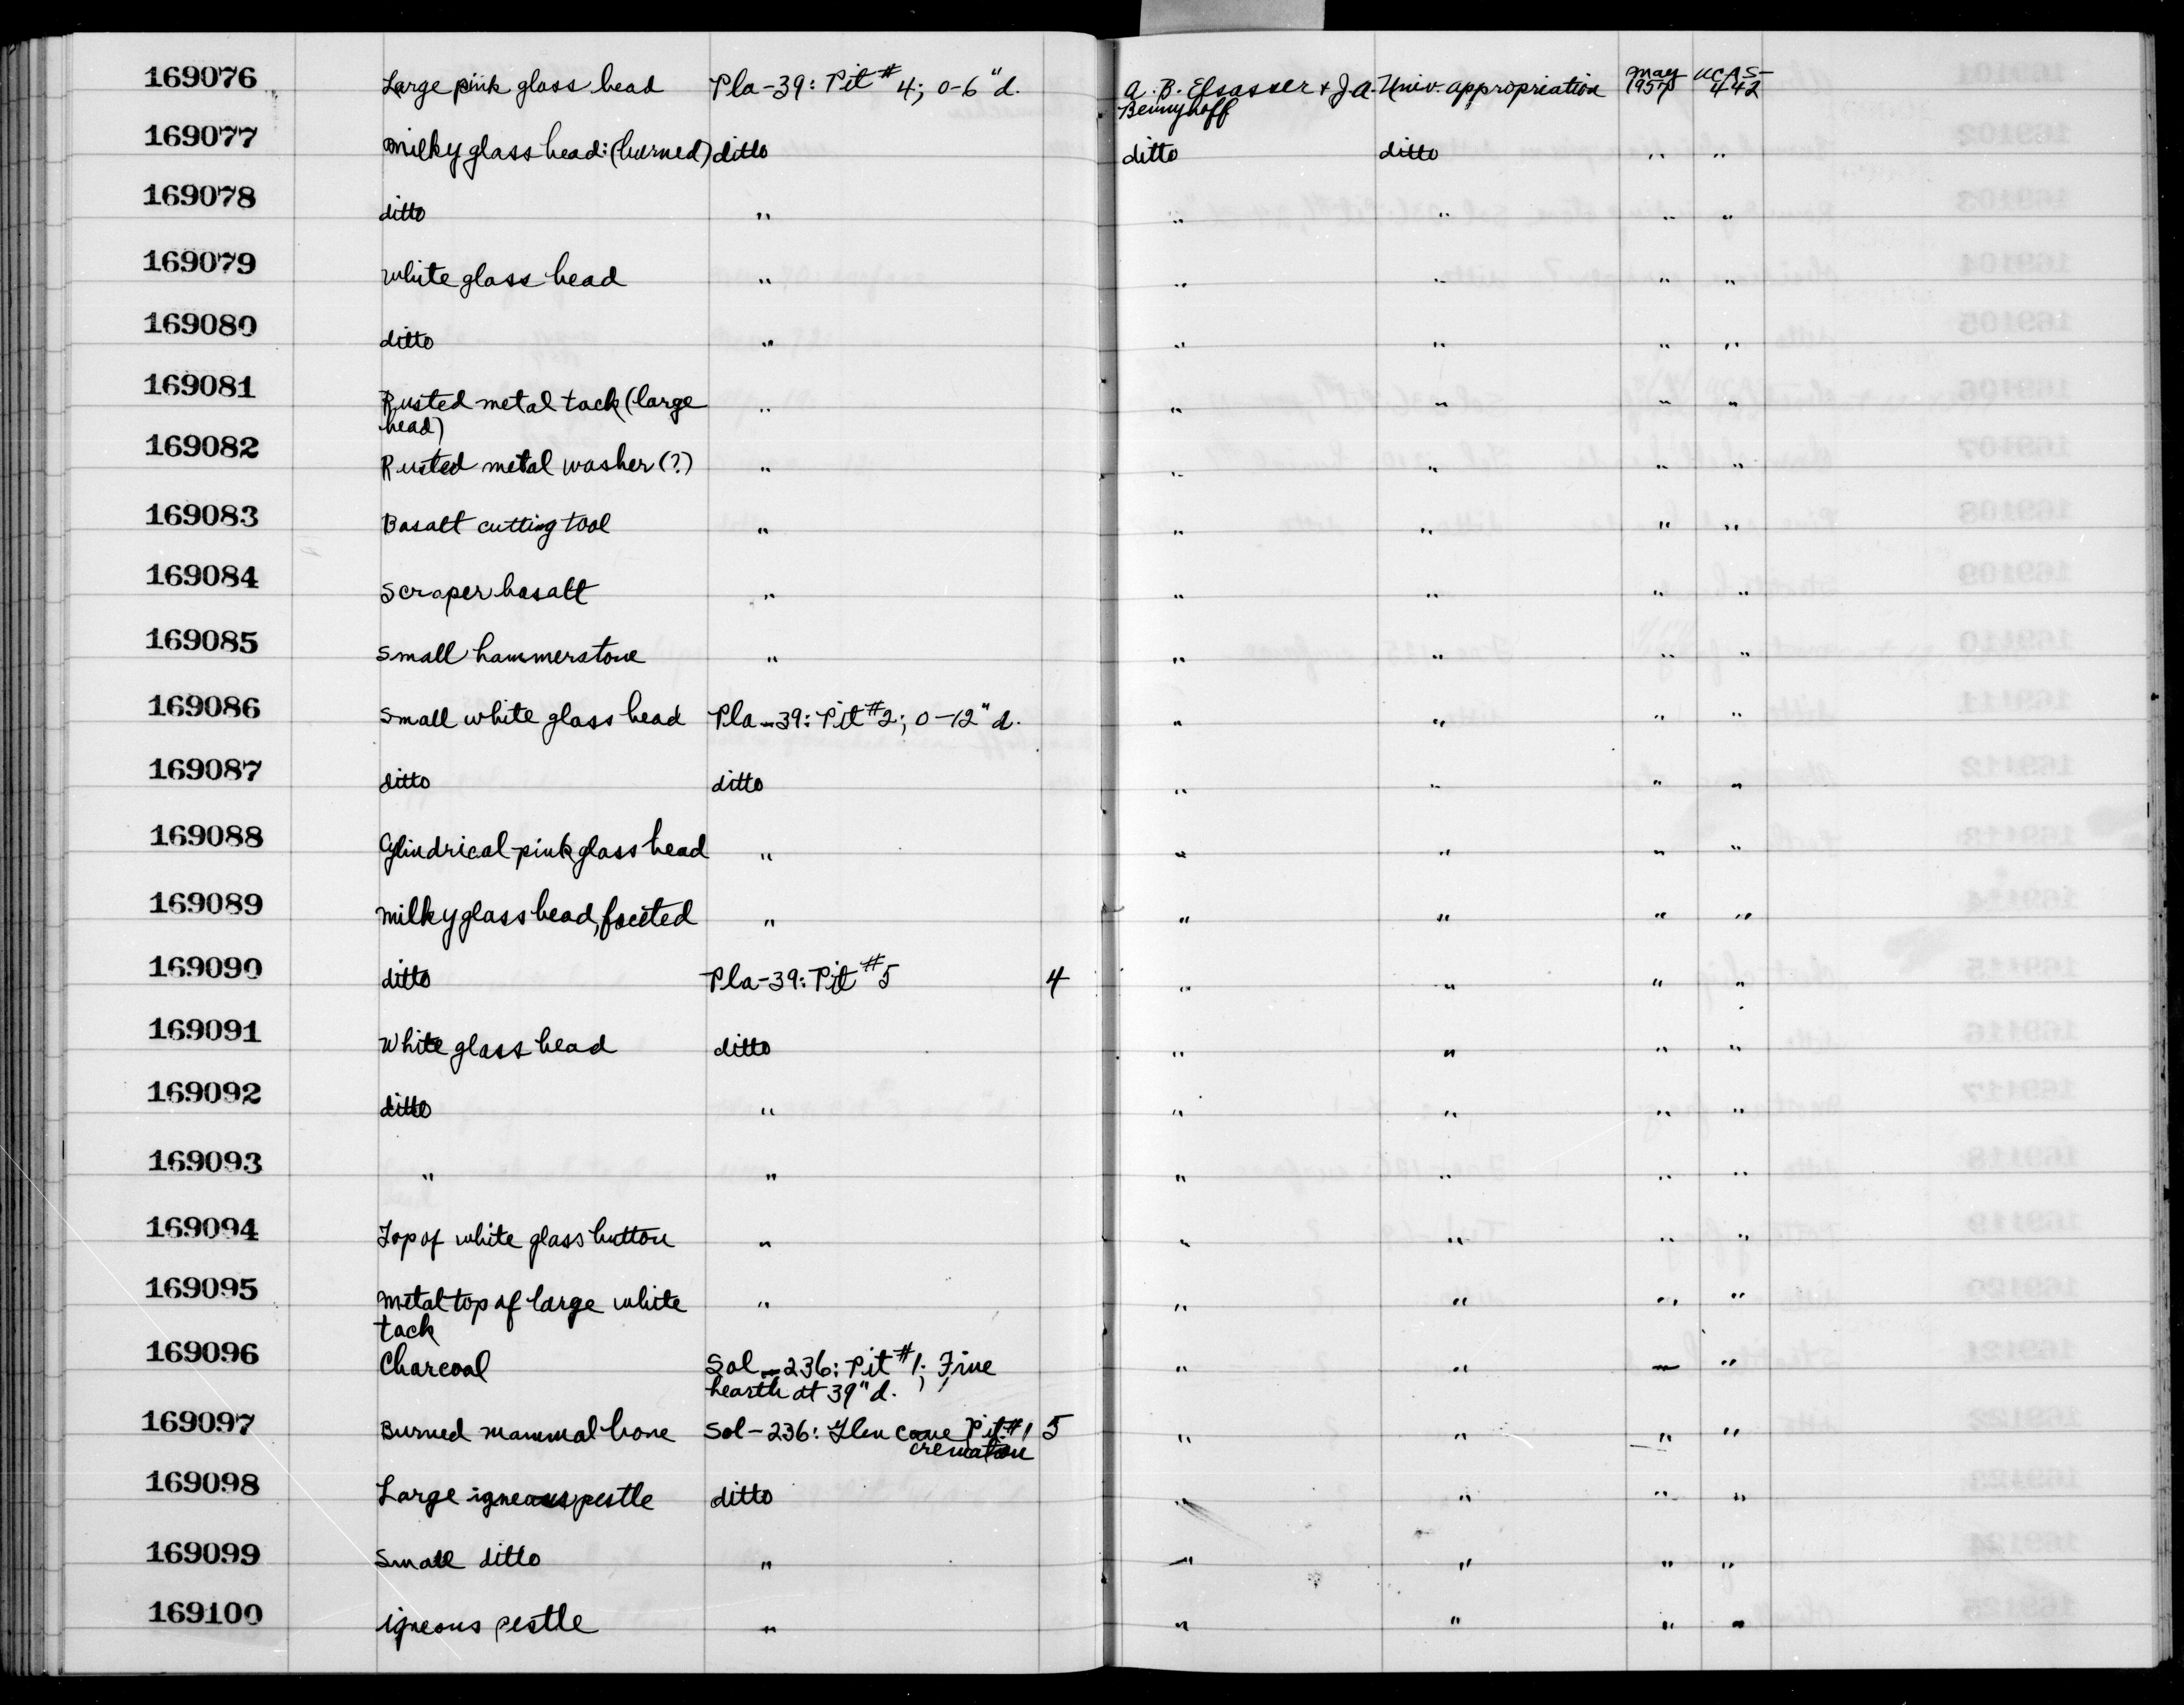 169076 Large pink glass bead Pla-39: Pit #4; 0-6" d. A. B. Elsasser & J.A. Univ. appropriation May 1957 UCAS-442
Bennyhoff
169077 Milky glass bead: (burned) ditto ditto ditto " "
169078 ditto " " " " "
169079 White glass bead " " " " "
169080 ditto " " " " "
169081 Rusted metal tack (large " " " " "
head)
169082 Rusted metal washer (?) " " " " "
169083 Basalt cutting tool " " " " "
169084 Scraper basalt " " " " "
169085 Small hammerstone " " " " "
169086 Small white glass bead Pla-39: Pit #2; 0-12" d. " " " "
169087 ditto ditto " " " "
169088 Cylindrical pink glass bead " " " " "
169089 Milky glass bead, faceted " " " " "
169090 ditto Pla-39: Pit #5 4 " " " "
169091 White glass bead ditto " " " "
169092 ditto " " " " "
169093 " " " " " "
169094 Top of white glass button " " " " "
169095 Metal top of large white " " " " "
tack
169096 Charcoal Sol-236: Pit #1; Fire " " " "
hearth at 39" d.
169097 Burned mammal bone Sol-236: Glen Cove Pit #1 5 " " " "
cremation
169098 Large igneous pestle ditto " " " "
169099 Small ditto " " " " "
169100 Igneous pestle " " " " "